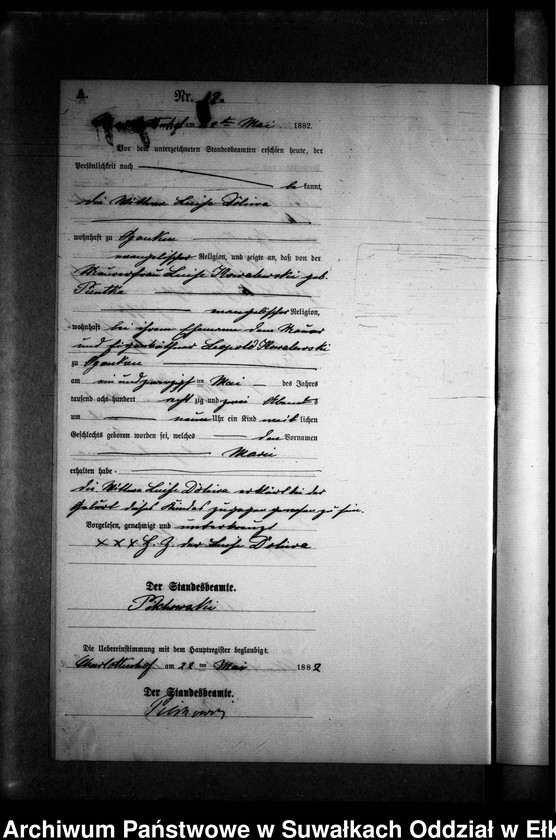 A.
Nr. 12.
am 22ten Mai 1882.
Vor dem unterzeichneten Standesbeamten erschien heute, der
Persönlichkeit nach
bekannt,
die Wittwe Luise Doliwa
wohnhaft zu
evangelischer Religion, und zeigte an, daß von der
Maurerfrau Luise Kowalewski geb.
evangelischer Religion,
wohnhaft bei ihrem Ehemann dem Maurer
und Eigenkäthner Leopold Kowalewski
zu
am ein und zwanzigsten Mai des Jahres
tausend acht hundert achtzig und zwei Abends
um neun Uhr ein Kind weiblichen
Geschlechts geboren worden sei, welches den Vornamen
Marie
erhalten habe.
die Wittwe Luise Doliwa erklärt bei der
Geburt dieses Kindes zugegen gewesen zu sein.
Vorgelesen, genehmigt und unterkreuzt
XXX H. Z. der Luise Doliwa
Der Standesbeamte.
Die Uebereinstimmung mit dem Hauptregister beglaubigt.
Charlottenhof am 22ten Mai 1882
Der Standesbeamte.
Archiwum Państwowe w Suwałkach Oddział w Ełk